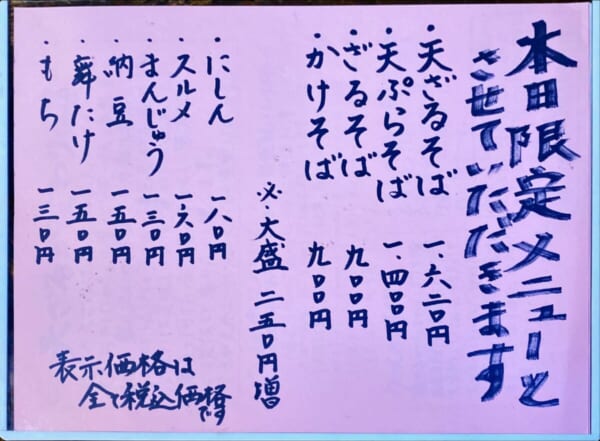 本日限定メニューと
させていただきます
・天ざるそば 一、六二〇円
・天ぷらそば 一、四〇〇円
・ざるそば 九〇〇円
・かけそば 九〇〇円
※・大盛 二五〇円増
・にしん 一八〇円
・スルメ 一、六〇円
・まんじゅう 一三〇円
・納豆 一五〇円
・舞たけ 一五〇円
・もち 一三〇円
表示価格は
全て税込価格
です